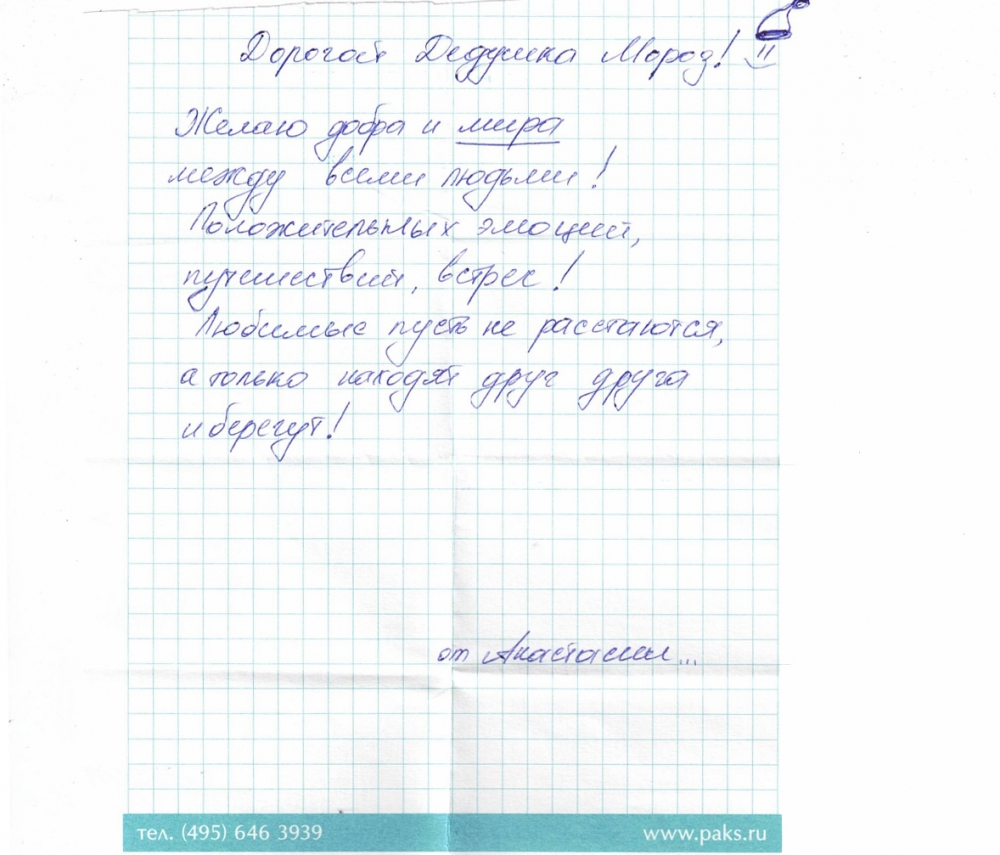 Дорогой Дедушка Мороз!
Желаю добра и мира
между всеми людьми!
Положительных эмоций,
путешествий, встреч!
Любимые пусть не расстаются,
а только находят друг друга
и берегут!
от Анастасии...
тел. (495) 646 3939
www.paks.ru